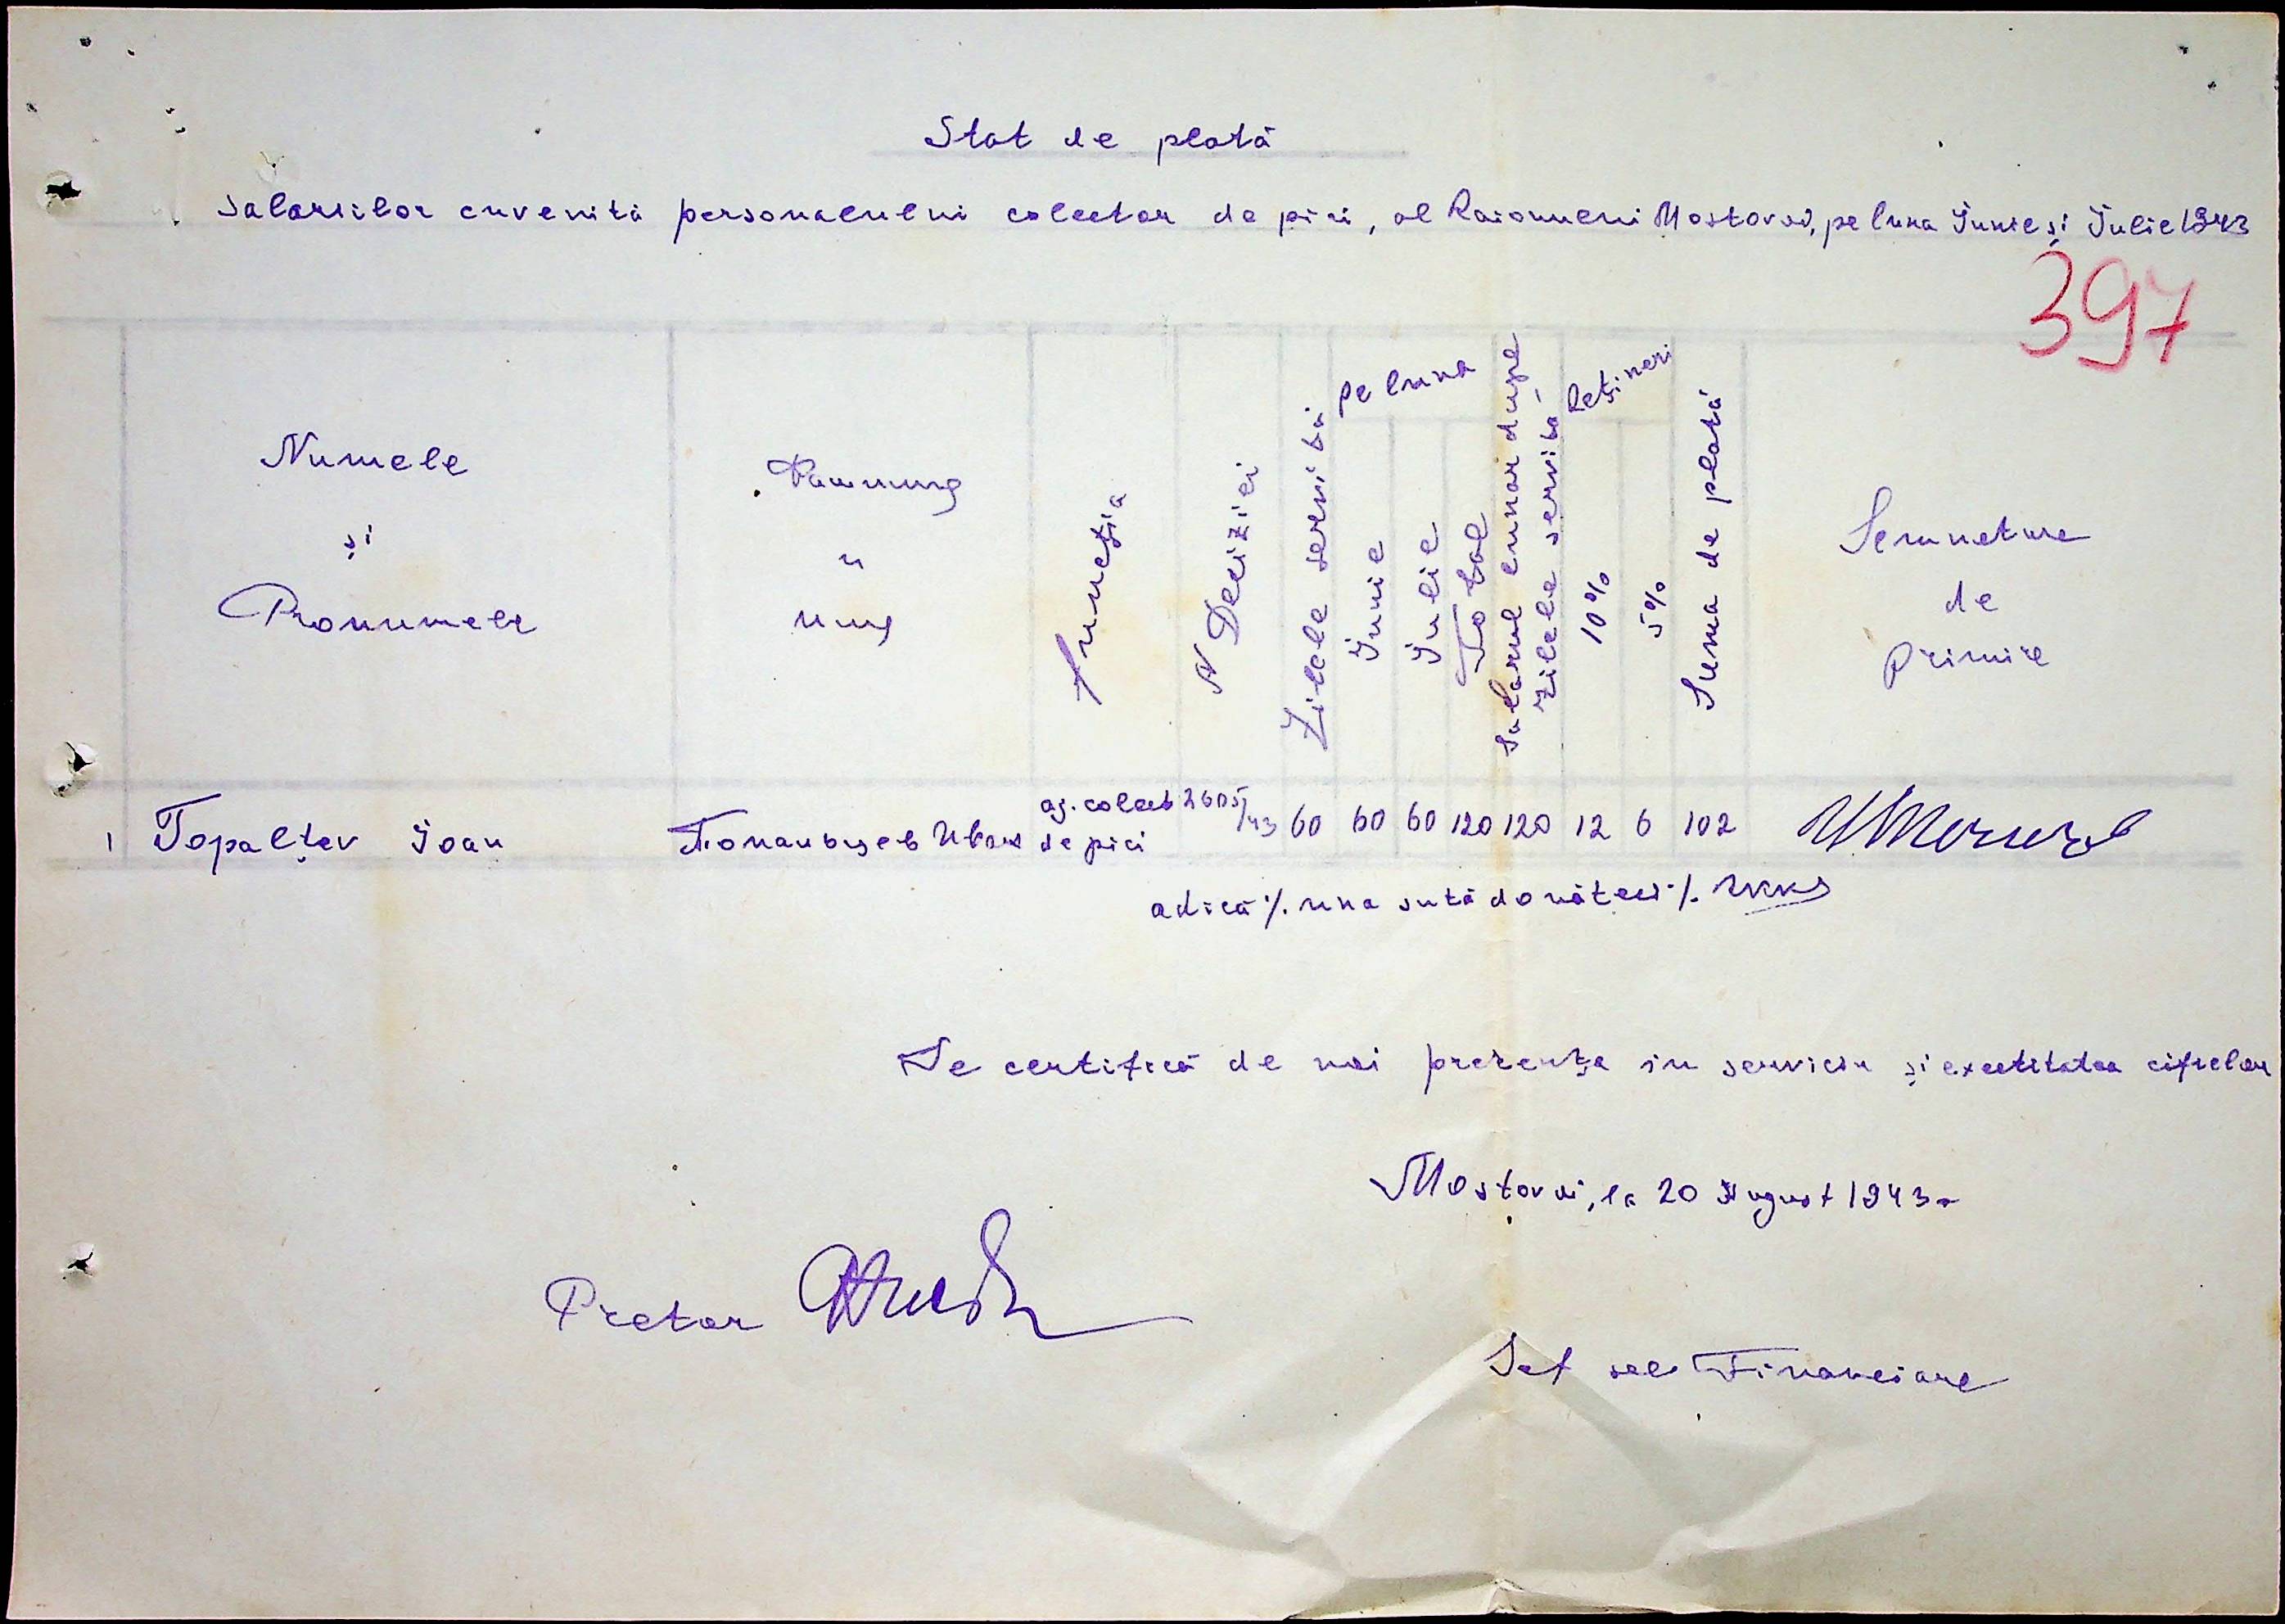 Stat de plată
salariilor cuvenită personalului colector de piei, al Raionului Mostovoi, pe luna Iunie și Iulie 1943
397
Numele
și
Pronumele
Фамилия
и
имя
funcția
N Deciziei
Zilele servită
pe luna
Iunie
Iulie
Total
Salarul lunar dupe
zilele servită
Rețineri
10%
5%
Suma de plată
Semnetura
de
primire
1 Topalțev Ioan Топальцев Иван ag. colect de piei 2605/43 60 60 60 120 120 12 6 102
adică ·/. una sută douătei ·/. RKKS
Se certifică de noi prezența in serviciu și exactitatea cifrelor
Mostovoi, la 20 August 1943
Pretor
Șef sec Financiare